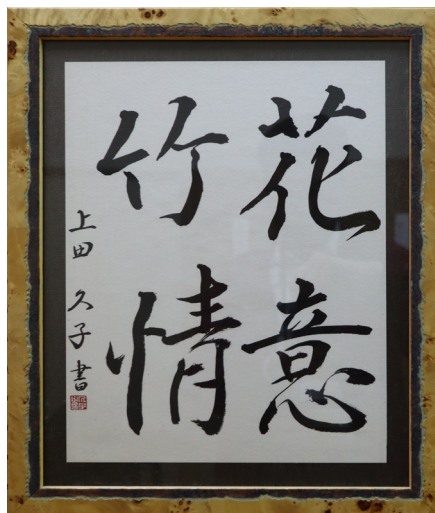 花意
竹情
上田久子書